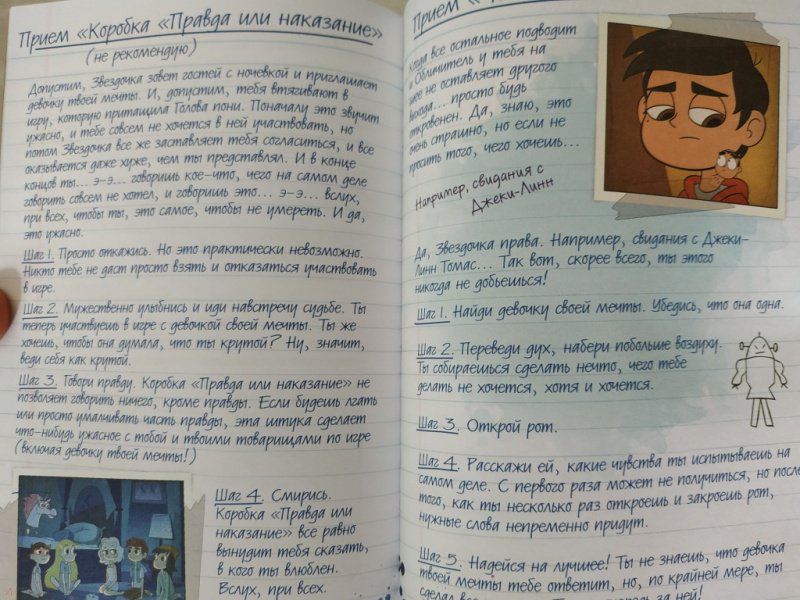 Прием «Коробка «Правда или наказание»
(не рекомендую)
Допустим, Звездочка зовет гостей с ночевкой и приглашает
девочку твоей мечты. И, допустим, тебя втягивают в
игру, которую притащила Голова пони. Поначалу это звучит
ужасно, и тебе совсем не хочется в ней участвовать, но
потом Звездочка все же заставляет тебя согласиться, и все
оказывается даже хуже, чем ты представлял. И в конце
концов ты... э-э... говоришь кое-что, чего на самом деле
говорить совсем не хотел, и говоришь это... э-э... вслух,
при всех, чтобы ты, это самое, чтобы не умереть. И да,
это ужасно.
Шаг 1. Просто откажись. Но это практически невозможно.
Никто тебе не даст просто взять и отказаться участвовать
в игре.
Шаг 2. Мужественно улыбнись и иди навстречу судьбе. Ты
теперь участвуешь в игре с девочкой своей мечты. Ты же
хочешь, чтобы она думала, что ты крутой? Ну, значит,
веди себя как крутой.
Шаг 3. Говори правду. Коробка «Правда или наказание» не
позволяет говорить ничего, кроме правды. Если будешь лгать
или просто умалчивать часть правды, эта штука сделает
что-нибудь ужасное с тобой и твоими товарищами по игре
(включая девочку твоей мечты!)
Шаг 4. Смирись.
Коробка «Правда или
наказание» все равно
вынудит тебя сказать,
в кого ты влюблен.
Вслух, при всех.
Прием «
Когда все остальное подводит
и Обличитель у тебя на
шее не оставляет другого
выхода... просто будь
откровенен. Да, знаю, это
очень страшно, но если не
просить того, чего хочешь...
Например, свидания с
Джеки-Линн
Да, Звездочка права. Например, свидания с Джеки-
Линн Томас... Так вот, скорее всего, ты этого
никогда не добьешься!
Шаг 1. Найди девочку своей мечты. Убедись, что она одна.
Шаг 2. Переведи дух, набери побольше воздуху.
Ты собираешься сделать нечто, чего тебе
делать не хочется, хотя и хочется.
Шаг 3. Открой рот.
Шаг 4. Расскажи ей, какие чувства ты испытываешь на
самом деле. С первого раза может не получиться, но после
того, как ты несколько раз откроешь и закроешь рот,
нужные слова непременно придут.
Шаг 5. Надейся на лучшее! Ты не знаешь, что девочка
твоей мечты тебе ответит, но, по крайней мере, ты
сделал все